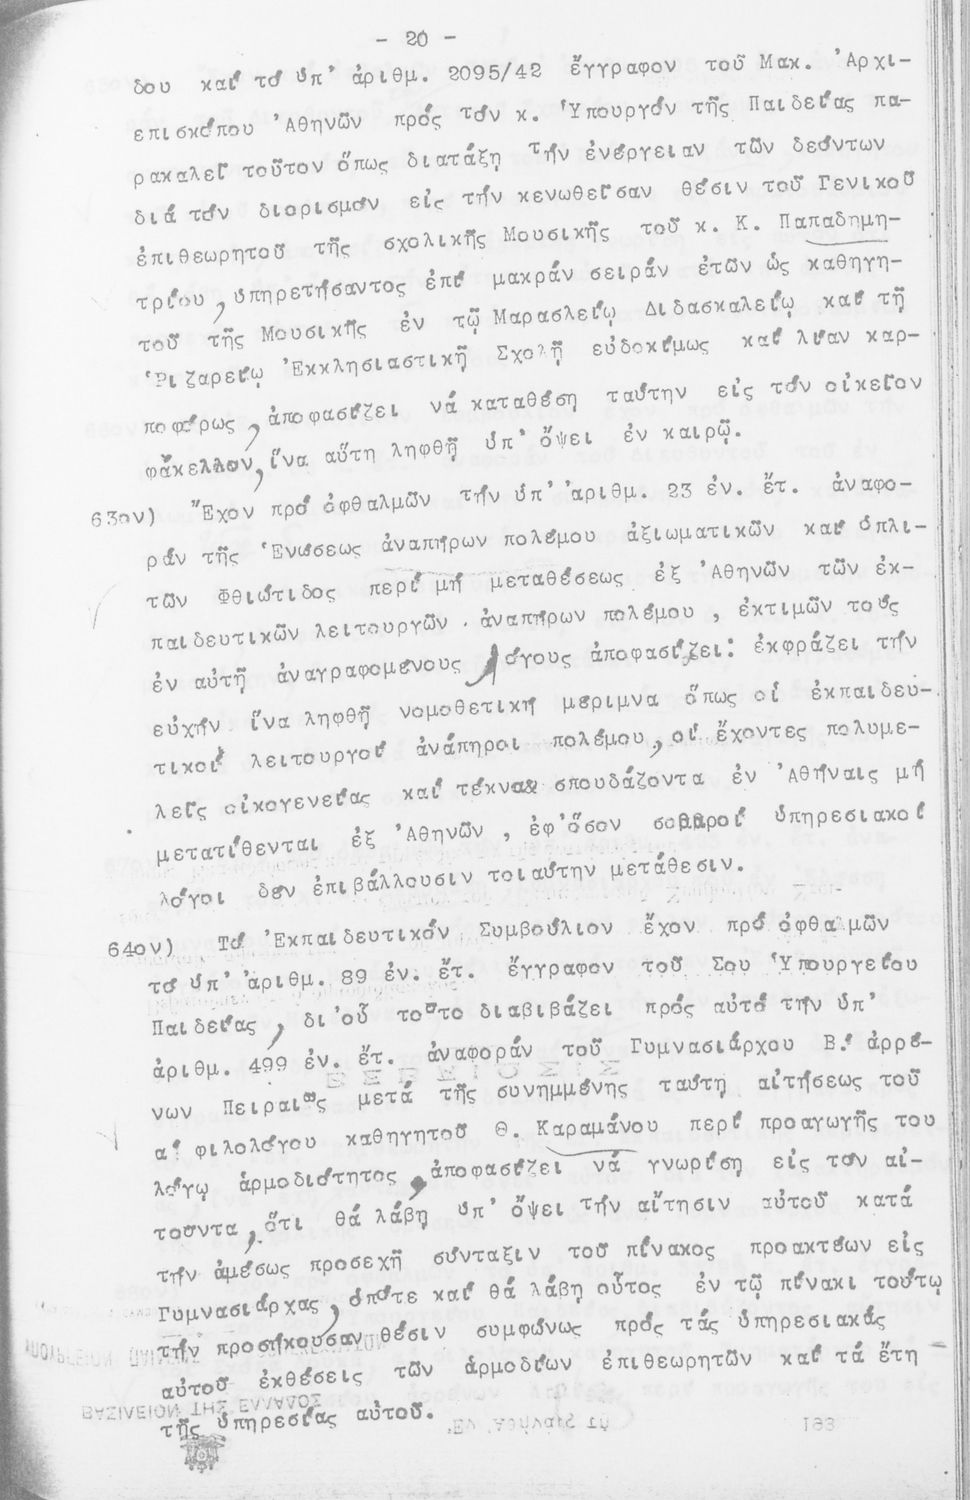 - 20 -
δου καί τό ὑπ' ἀριθμ. 2095/42 ἔγγραφον τοῦ Μακ. Ἀρχι-
επισκόπου Ἀθηνῶν πρός τόν κ. Ὑπουργόν τῆς Παιδείας πα-
ρακαλεῖ τοῦτον ὅπως διατάξῃ τήν ἐνέργειαν τῶν δεόντων
διά τόν διορισμόν εἰς τήν κενωθεῖσαν θέσιν τοῦ Γενικοῦ
ἐπιθεωρητοῦ τῆς σχολικῆς Μουσικῆς τοῦ κ. Κ. Παπαδημη-
τρίου, ὑπηρετήσαντος ἐπί μακράν σειράν ἐτῶν ὡς καθηγη-
τοῦ τῆς Μουσικῆς ἐν τῷ Μαρασλείῳ Διδασκαλείῳ καί τῇ
Ῥιζαρείῳ Ἐκκλησιαστικῇ Σχολῇ εὐδοκίμως καί λίαν καρ-
ποφόρως, ἀποφασίζει νά καταθέσῃ ταύτην εἰς τόν οἰκεῖον
φάκελλον, ἵνα αὕτη ληφθῇ ὑπ' ὄψει ἐν καιρῷ.
63ον) Ἔχον πρό ὀφθαλμῶν τήν ὑπ' ἀριθμ. 23 ἐν. ἔτ. ἀναφο-
ράν τῆς Ἑνώσεως ἀναπήρων πολέμου ἀξιωματικῶν καί ὁπλι-
τῶν Φθιώτιδος περί μή μεταθέσεως ἐξ Ἀθηνῶν τῶν ἐκ-
παιδευτικῶν λειτουργῶν . ἀναπήρων πολέμου, ἐκτιμῶν τούς
ἐν αὐτῇ ἀναγραφομένους λόγους ἀποφασίζει: ἐκφράζει τήν
εὐχήν ἵνα ληφθῇ νομοθετική μέριμνα ὅπως οἱ ἐκπαιδευ-
τικοί λειτουργοί ἀνάπηροι πολέμου, οἱ ἔχοντες πολυμε-
λεῖς οἰκογενείας καί τέκνα σπουδάζοντα ἐν Ἀθήναις μή
μετατίθενται ἐξ Ἀθηνῶν, ἐφ' ὅσον σοβαροί ὑπηρεσιακοί
λόγοι δέν ἐπιβάλλουσιν τοιαύτην μετάθεσιν.
64ον) Τό Ἐκπαιδευτικόν Συμβούλιον ἔχον πρό ὀφθαλμῶν
τό ὑπ' ἀριθμ. 89 ἐν. ἔτ. ἔγγραφον τοῦ Σου Ὑπουργείου
Παιδείας, δι' οὗ τοῦτο διαβιβάζει πρός αὐτό τήν ὑπ'
ἀριθμ. 499 ἐν. ἔτ. ἀναφοράν τοῦ Γυμνασιάρχου Β.΄ ἀρρέ-
νων Πειραιῶς μετά τῆς συνημμένης ταύτῃ αἰτήσεως τοῦ
α΄ φιλολόγου καθηγητοῦ Θ. Καραμάνου περί προαγωγῆς του
λόγῳ ἁρμοδιότητος, ἀποφασίζει νά γνωρίσῃ εἰς τόν αἰ-
τοῦντα, ὅτι θά λάβῃ ὑπ' ὄψει τήν αἴτησιν αὐτοῦ κατά
τήν ἀμέσως προσεχῆ σύνταξιν τοῦ πίνακος προακτέων εἰς
Γυμνασιάρχας, ὁπότε καί θά λάβῃ οὗτος ἐν τῷ πίνακι τούτῳ
τήν προσήκουσαν θέσιν συμφώνως πρός τάς ὑπηρεσιακάς
αὐτοῦ ἐκθέσεις τῶν ἁρμοδίων ἐπιθεωρητῶν καί τά ἔτη
τῆς ὑπηρεσίας αὐτοῦ.